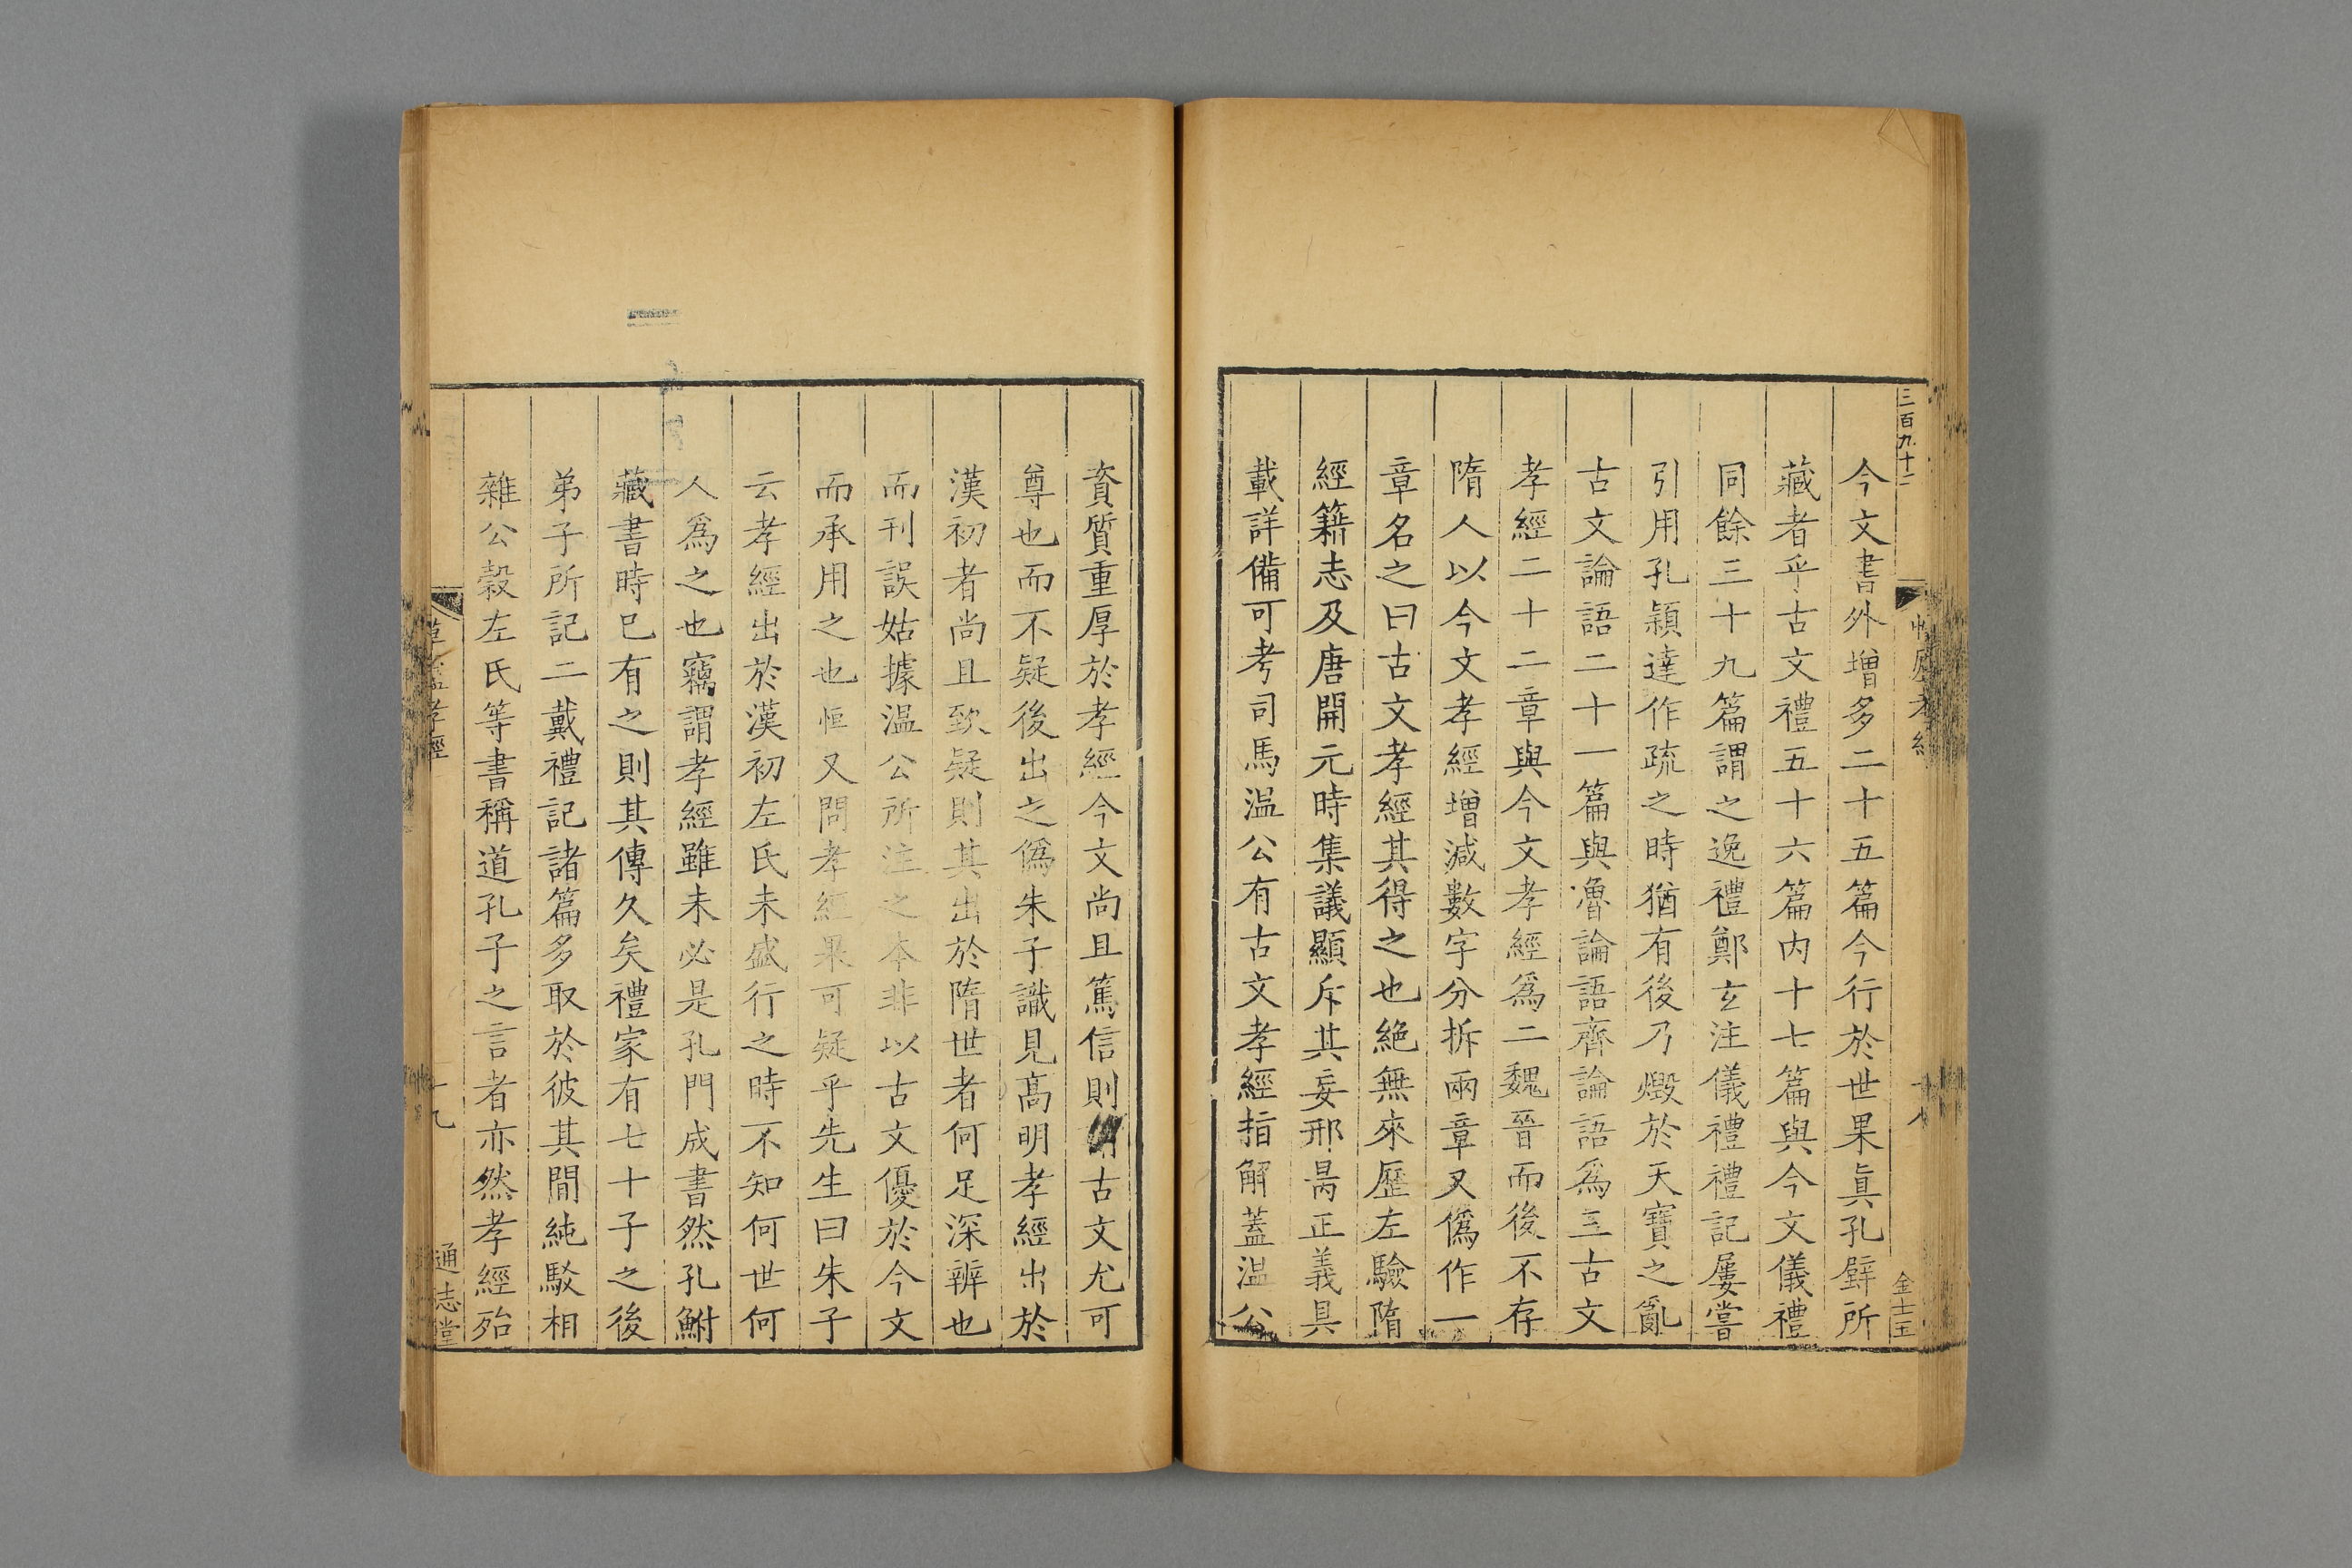 三百九十二
今文書外增多二十五篇今行於世果眞孔壁所
藏者乎古文禮五十六篇内十七篇與今文儀禮
同餘三十九篇謂之逸禮鄭玄注儀禮禮記屢嘗
引用孔穎達作疏之時猶有後乃燬於天寶之亂
古文論語二十一篇與魯論語齊論語爲三古文
孝經二十二章與今文孝經爲二魏晉而後不存
隋人以今文孝經增減數字分拆兩章又僞作一
章名之曰古文孝經其得之也絶無來歷左驗隋
經籍志及唐開元時集議顯斥其妄邢昺正義具
載詳備可考司馬温公有古文孝經指解蓋温公
資質重厚於孝經今文尚且篤信則古文尤可
尊也而不疑後出之僞朱子識見髙明孝經出於
漢初者尚且致疑則其出於隋世者何足深辨也
而刊誤姑據温公所注之本非以古文優於今文
而承用之也恒又問孝經果可疑乎先生曰朱子
云孝經出於漢初左氏未盛行之時不知何世何
人爲之也竊謂孝經雖未必是孔門成書然孔鮒
藏書時已有之則其傳久矣禮家有七十子之後
弟子所記二戴禮記諸篇多取於彼其間純駁相
雜公榖左氏等書稱道孔子之言者亦然孝經殆
孝經
通志堂